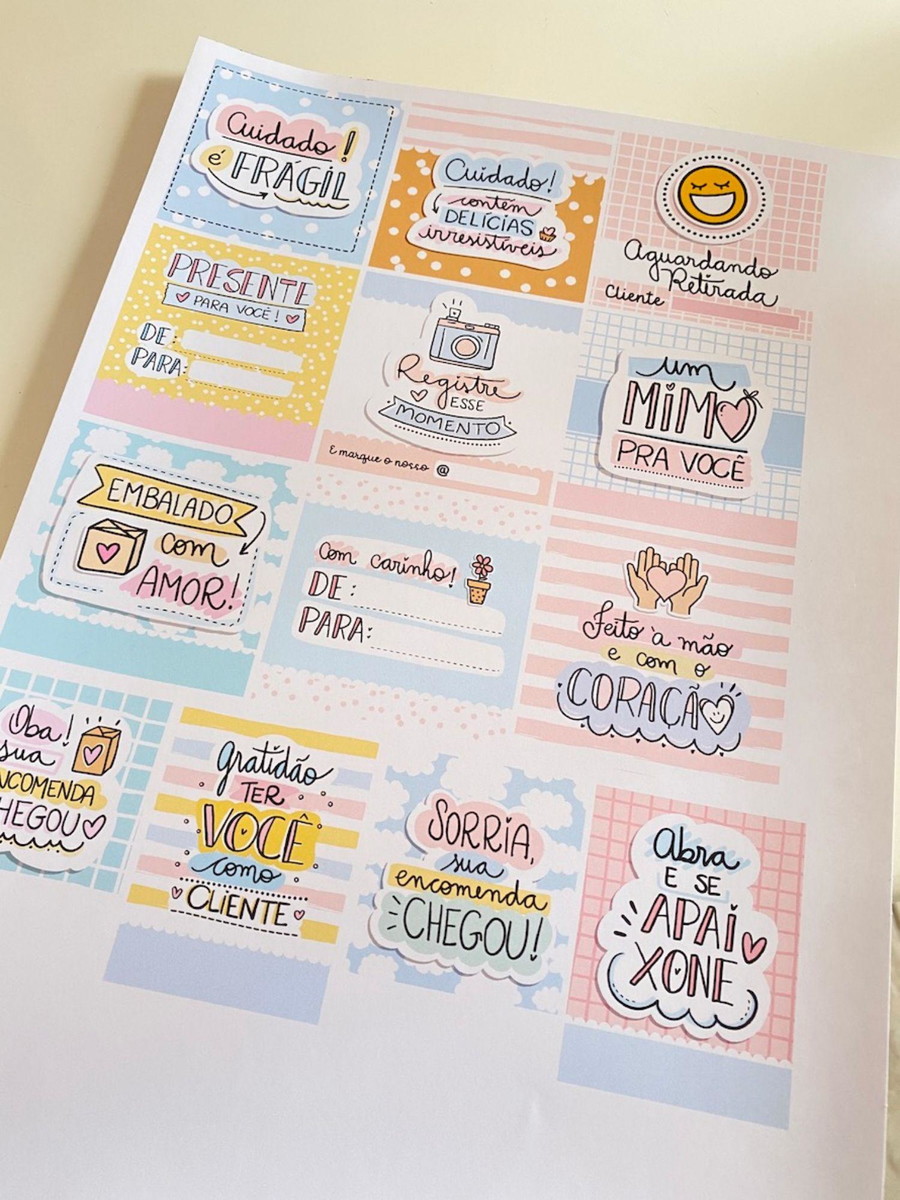 Cuidado!
é FRÁGIL
Cuidado!
contém
DELÍCIAS
irresistíveis
Aguardando
Retirada
Cliente
PRESENTE
PARA VOCÊ!
DE:
PARA:
Registre
ESSE
MOMENTO
E marque o nosso @
um
MiMO
PRA VOCÊ
EMBALADO
com
AMOR!
Com carinho!
DE:
PARA:
Feito à mão
e com o
CORAÇÃO
Oba!
sua
NCOMENDA
HEGOU
gratidão
TER
VOCÊ
como
CLIENTE
SORRiA,
sua
encomenda
CHEGOU!
Abra
E SE
APAi
XONE